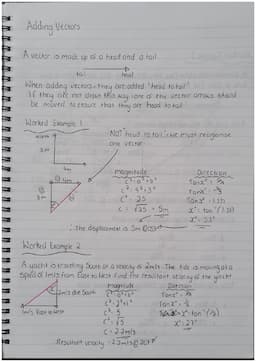 Adding Vectors
A vector is made up of a head and a tail
tail head
When adding vectors they are added 'head to tail'
If they are not drawn this way one of the vector arrows should
be moved to ensure that they are head to tail
Worked Example 1
4m
3m
NOT head to tail: we must reorganise
one vector
4m
3m
magnitude
c² = a² + b²
c² = 4² + 3²
c² = 25
c = √25 = 5m
Direction
Tanx° =
Tanx° =
Tanx° = 1.33
x° = tan⁻¹(1.33)
x° = 53°
∴ The displacement is 5m @053°
Worked Example 2
A yacht is travelling South at a velocity of 2m/s. The tide is moving at a
speed of 1m/s from East to West. Find the resultant velocity of the yacht.
2m/s due South
1m/s East to West
Magnitude
c² = a² + b²
c² = 2² + 1²
c² = 5
c = √5
c = 2.2m/s
Direction
Tanx° =
Tanx° =
x° = tan⁻¹
x = 27°
Resultant velocity =